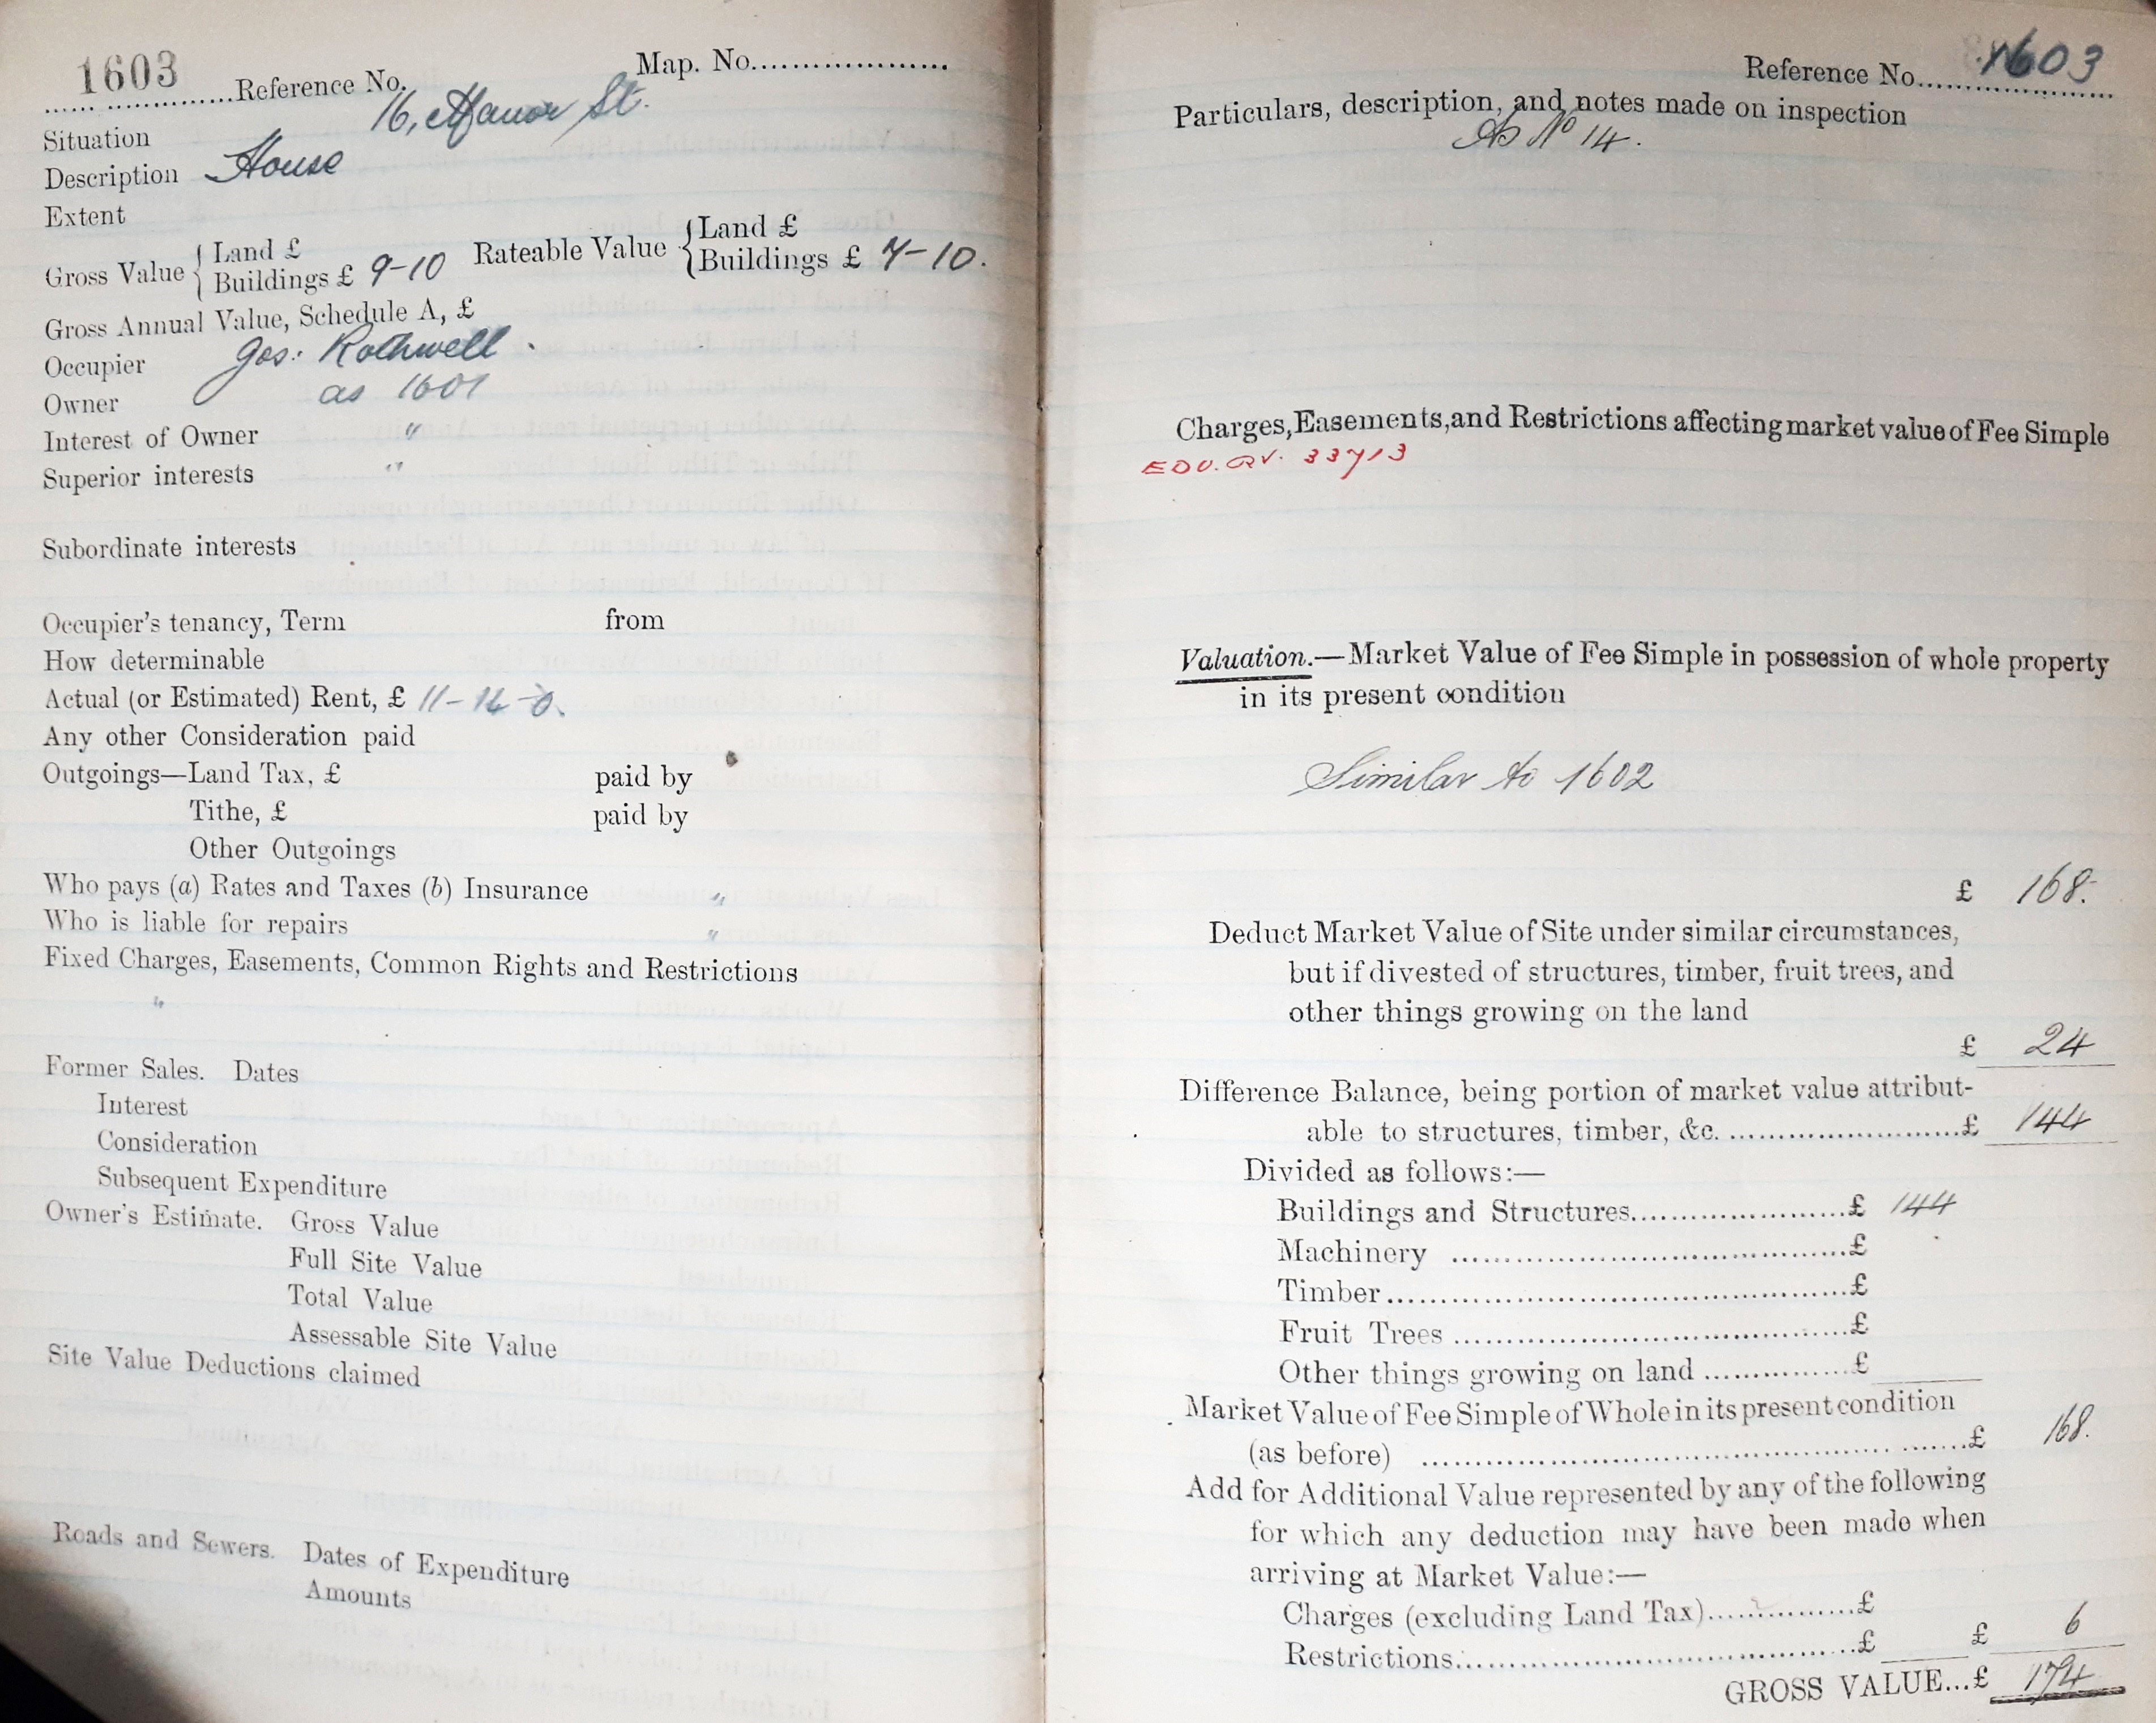 1603
Reference No.
Map. No.
16, Manor St.
Situation
Description House
Extent
Gross Value { Land £
Buildings £ 9-10
Rateable Value { Land £
Buildings £ 7-10.
Gross Annual Value, Schedule A, £
Occupier Jos: Rothwell.
Owner as 1601
Interest of Owner "
Superior interests "
Subordinate interests
Occupier's tenancy, Term from
How determinable
Actual (or Estimated) Rent, £ 11- -0.
Any other Consideration paid
Outgoings—Land Tax, £ paid by
Tithe, £ paid by
Other Outgoings
Who pays (a) Rates and Taxes (b) Insurance "
Who is liable for repairs "
Fixed Charges, Easements, Common Rights and Restrictions
"
Former Sales. Dates
Interest
Consideration
Subsequent Expenditure
Owner's Estimate. Gross Value
Full Site Value
Total Value
Assessable Site Value
Site Value Deductions claimed
Roads and Sewers. Dates of Expenditure
Amounts
Reference No. 1603
Particulars, description, and notes made on inspection
As No 14.
Charges, Easements, and Restrictions affecting market value of Fee Simple
33713
Valuation.—Market Value of Fee Simple in possession of whole property
in its present condition
Similar to 1602
£ 168.
Deduct Market Value of Site under similar circumstances,
but if divested of structures, timber, fruit trees, and
other things growing on the land
£ 24
Difference Balance, being portion of market value attribut-
able to structures, timber, &c. £ 144
Divided as follows:—
Buildings and Structures £ 144
Machinery £
Timber £
Fruit Trees £
Other things growing on land £
Market Value of Fee Simple of Whole in its present condition
(as before) £ 168.
Add for Additional Value represented by any of the following
for which any deduction may have been made when
arriving at Market Value:—
Charges (excluding Land Tax) £
Restrictions £ £ 6
GROSS VALUE...£ 174